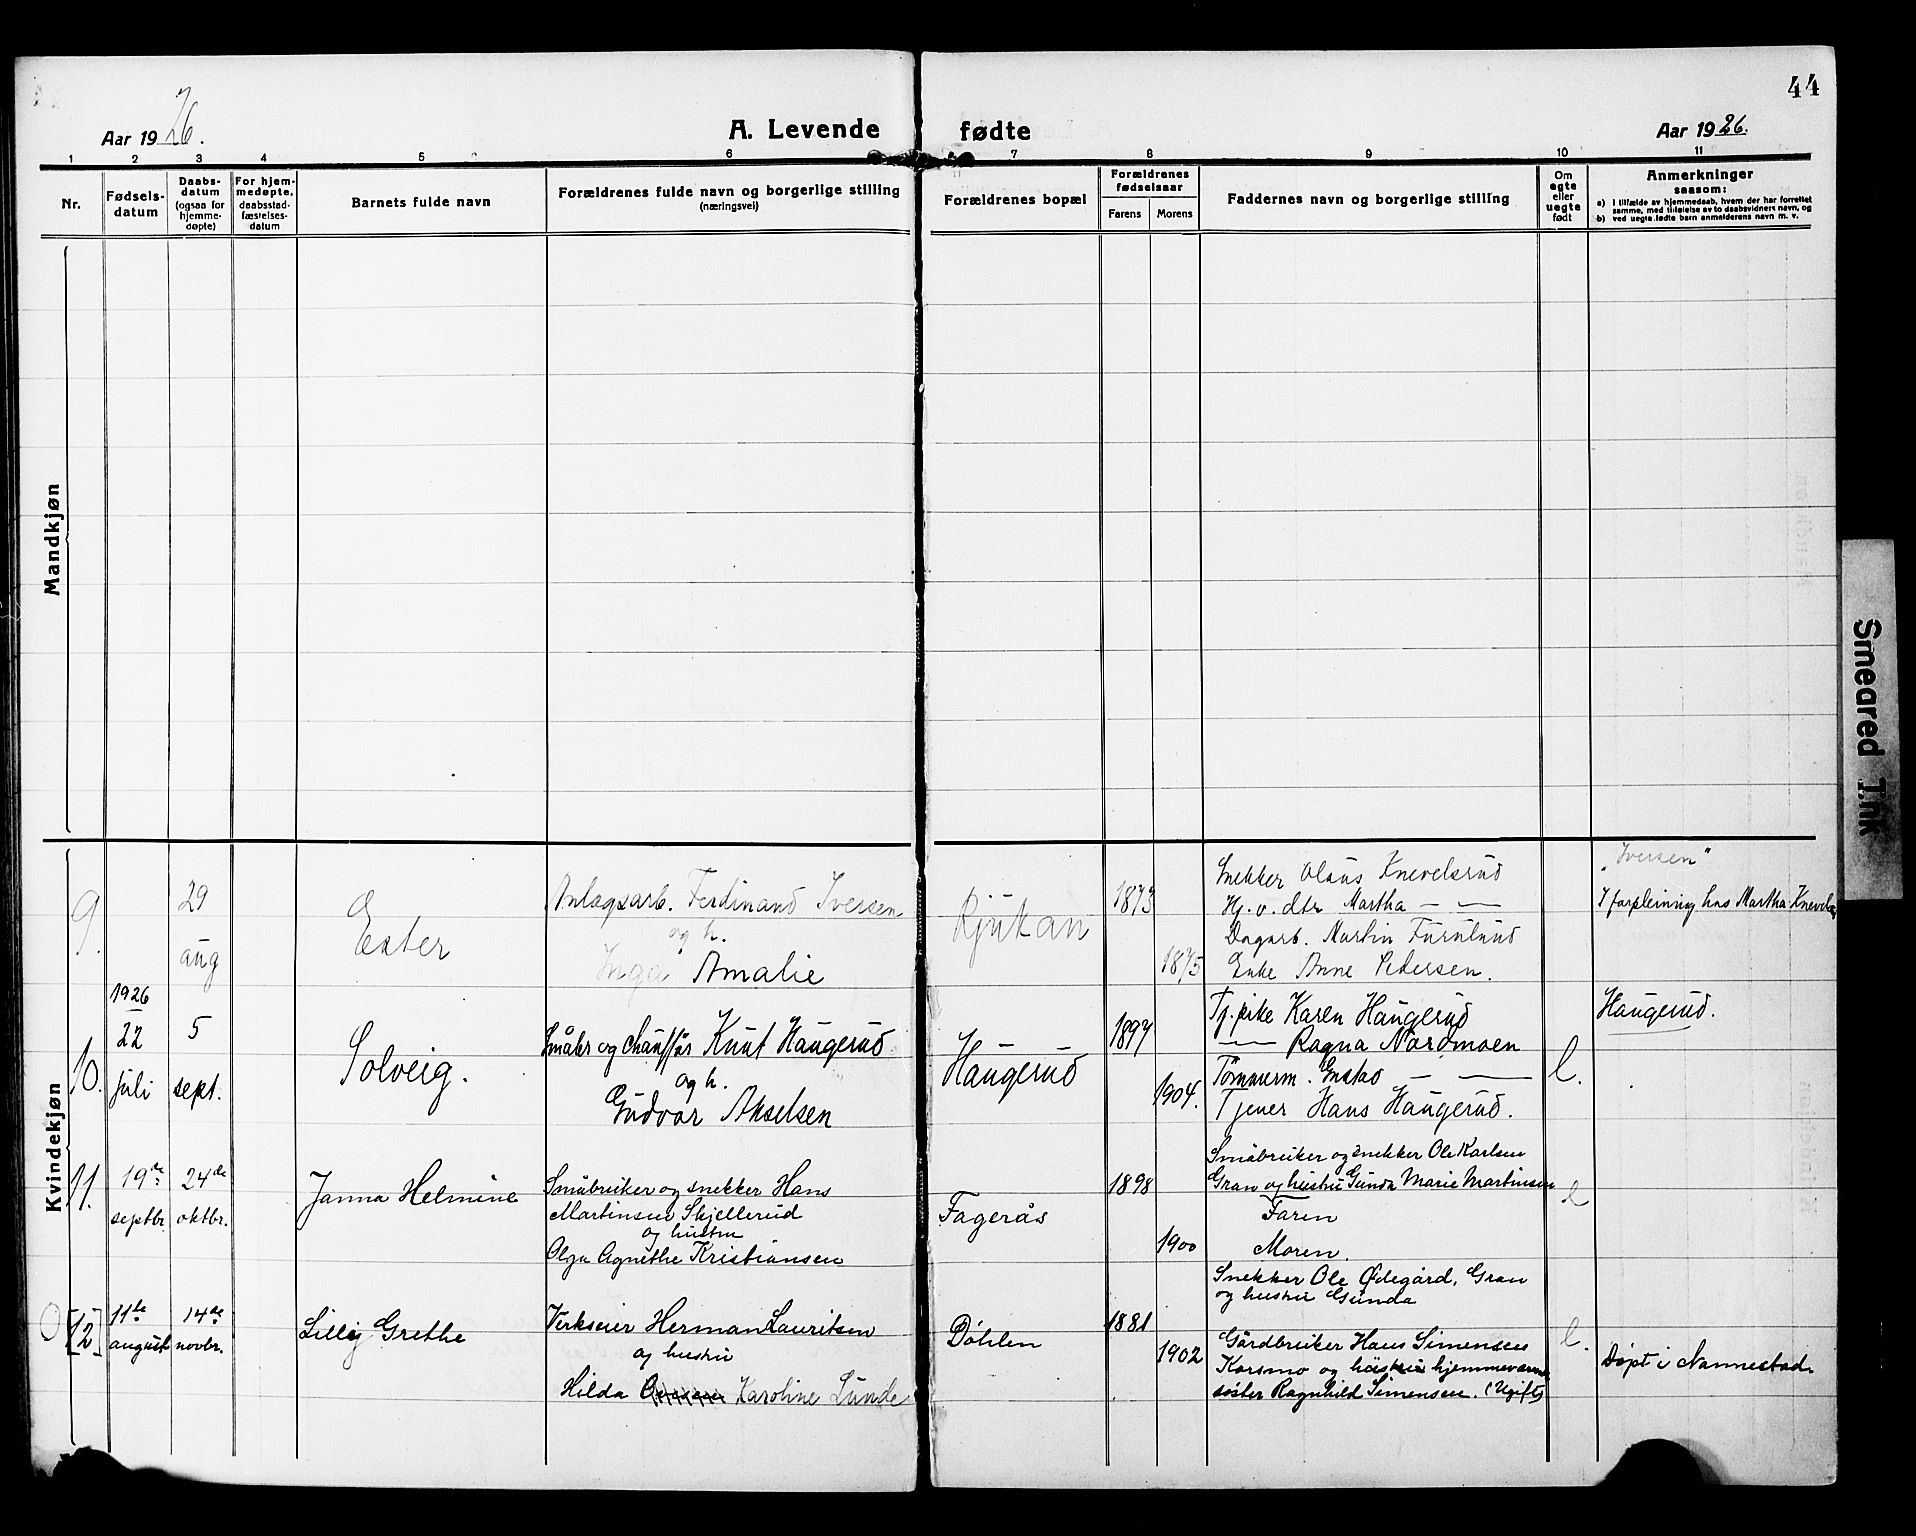 44
Aar 1926.
A. Levende fødte
Aar 1926.
1 2 3 4 5 6 7 8 9 10 11
Nr.
Fødselsdatum
Daabsdatum (ogsaa for hjemmedøpte)
For hjemmedøpte, daabsstadfæstelsesdatum
Barnets fulde navn
Forældrenes fulde navn og borgerlige stilling (næringsvei)
Forældrenes bopæl
Forældrenes fødselsaar
Farens
Morens
Faddernes navn og borgerlige stilling
Om egte eller uegte født
Anmerkninger saasom:
a) I tilfælde av hjemmedaab, hvem der har forrettet samme, med tilføielse av to daabsvidners navn, og
b) ved uegte fødte barn anmelderens navn m. v.
Mandkjøn
Kvindekjøn
9.
29 aug
Ester
Anlægsarb. Ferdinand Iversen
og h.
Inga Amalie
Rjukan
1873
1875
Snekker Olaus Knevelsrud
Hj. v. dtr Martha — —
Dagarb. Martin Furulund
Enke Anne Pedersen.
"Iversen"
I forpleining hos Martha Knevels
10.
1926
22 juli
5 sept.
Solveig.
Småbr og chauffør Knut Haugerud
og h.
Gudvor Akselsen
Haugerud
1897
1904.
Tj. pike Karen Haugerud
— Ragna Nordmoen
Tømmerm. Gustav — —
Tjener Hans Haugerud.
l.
Haugerud.
11.
19de septbr.
24de oktbr.
Janna Helmine
Småbruker og snekker Hans
Martinsen Skjellerud
og hustru
Olga Agnethe Kristiansen
Fagerås
1898
1900
Småbruker og snekker Ole Karlsen
Gran og hustru Gunda Marie Martinsen
Faren
Moren.
l
[12]
11te august
14de novbr.
Lilly Grethe
Verkseier Herman Lauritsen
og hustru
Hilda Karoline Lunde
Döhlen
1881
1902
Snekker Ole Ødegård, Gran
og hustru Gunda
Gårdbruker Hans Simensen
Korsmo og hjemmeværende
søster Ragnhild Simensen. (Ugift)
l.
Døpt i Nannestad.
Smeared Ink